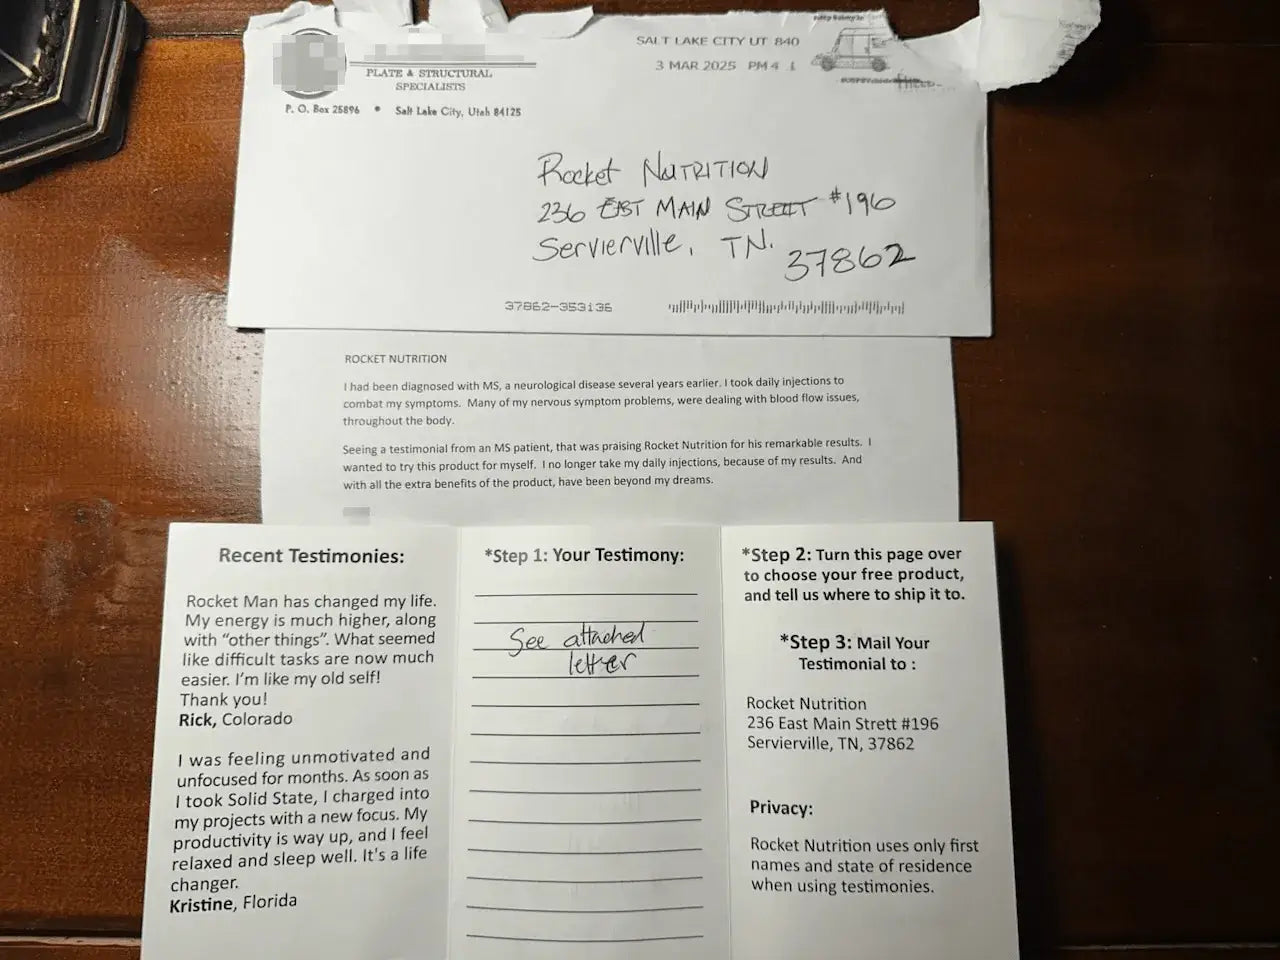 PLATE & STRUCTURAL
SPECIALISTS
P. O. Box 25896 • Salt Lake City, Utah 84125
SALT LAKE CITY UT 840
3 MAR 2025 PM 4 L
Rocket NUTRITION
236 EAST MAIN STREET #196
Servierville, TN.
37862
37862-353136
ROCKET NUTRITION
I had been diagnosed with MS, a neurological disease several years earlier. I took daily injections to
combat my symptoms. Many of my nervous symptom problems, were dealing with blood flow issues,
throughout the body.
Seeing a testimonial from an MS patient, that was praising Rocket Nutrition for his remarkable results. I
wanted to try this product for myself. I no longer take my daily injections, because of my results. And
with all the extra benefits of the product, have been beyond my dreams.
Recent Testimonies:
Rocket Man has changed my life.
My energy is much higher, along
with “other things”. What seemed
like difficult tasks are now much
easier. I’m like my old self!
Thank you!
Rick, Colorado
I was feeling unmotivated and
unfocused for months. As soon as
I took Solid State, I charged into
my projects with a new focus. My
productivity is way up, and I feel
relaxed and sleep well. It’s a life
changer.
Kristine, Florida
*Step 1: Your Testimony:
See attached
letter
*Step 2: Turn this page over
to choose your free product,
and tell us where to ship it to.
*Step 3: Mail Your
Testimonial to :
Rocket Nutrition
236 East Main Strett #196
Servierville, TN, 37862
Privacy:
Rocket Nutrition uses only first
names and state of residence
when using testimonies.